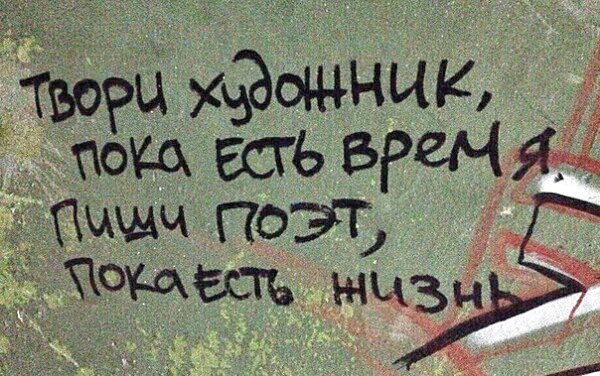 твори художник,
пока есть время.
пиши поэт,
пока есть жизнь